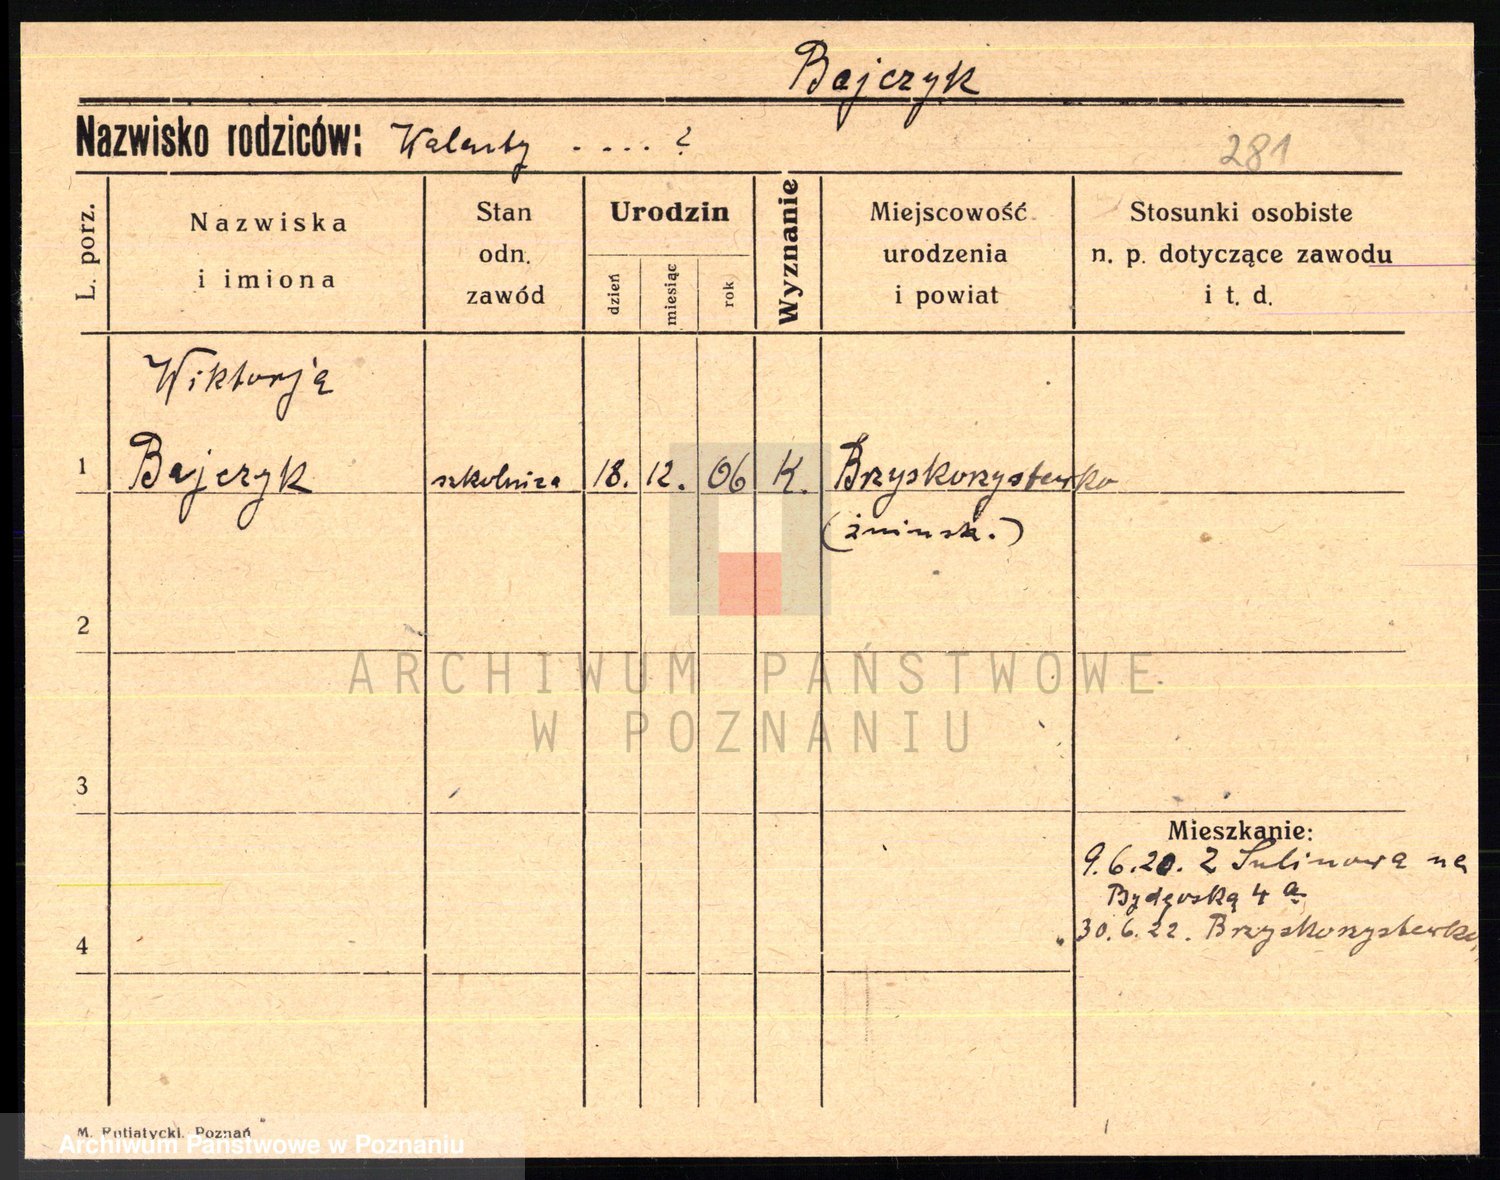 Bajczyk
Nazwisko rodziców: Walenty . . . . ?
281
L. porz.
Nazwiska
i imiona
Stan
odn.
zawód
Urodzin
dzień
miesiąc
rok
Wyznanie
Miejscowość
urodzenia
i powiat
Stosunki osobiste
n. p. dotyczące zawodu
i t. d.
Wiktorja
1 Bajczyk szkolnica 18. 12. 06 K. Brzyskorzystewko
(żnińsk.)
2
3
Mieszkanie:
9.6.20. Z Sulinowa na
Bydgoską 4 a
30.6.22. Brzyskorzystewko
4
M. Putiatycki. Poznań
ARCHIWUM PAŃSTWOWE
W POZNANIU
Archiwum Państwowe w Poznaniu